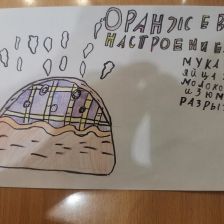 ОРАНЖЕВ
НАСТРОЕНИЕ
МУКА
ЯЙЦА
МОЛОКО
ИЗЮМ
РАЗРЫ